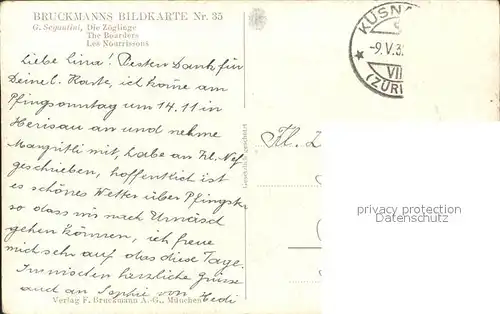 BRUCKMANNS BILDKARTE Nr. 35
G. Segantini, Die Zöglinge
The Boarders
Les Nourrissons
Liebe Lina! Besten Dank für
Deine l. Karte, ich komme am
Pfingsonntag um 14.11 in
Herisau an und nehme
Margritli mit, habe an Frl. Nef
geschrieben, hoffentlich ist
es schönes Wetter über Pfingsten
so dass wir nach Urnäsch
gehen können, ich freue
mich sehr auf das diese Tage.
Inzwischen herzliche Grüsse
auch an Sophie von Hedi
Verlag F. Bruckmann A.-G., München
Gesetzlich geschützt
KÜSNA
-9.V.3
VII
(ZÜRI
Frl. L
privacy protection
Datenschutz